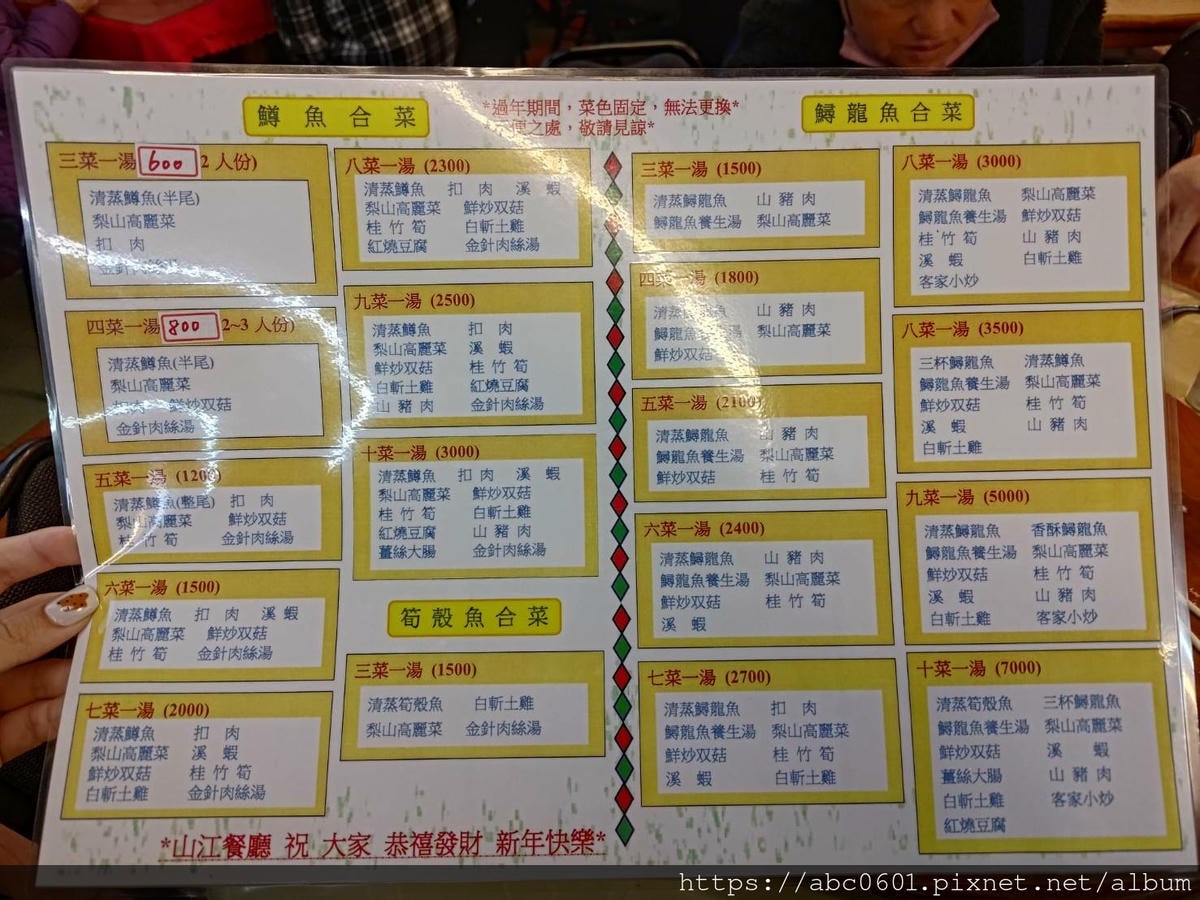 鱒魚合菜
*過年期間，菜色固定，無法更換*
之處，敬請見諒*
鱘龍魚合菜
三菜一湯 600 2 人份)
清蒸鱒魚(半尾)
梨山高麗菜
扣 肉
金針肉絲湯
四菜一湯 800 2~3 人份)
清蒸鱒魚(半尾)
梨山高麗菜
鮮炒双菇
金針肉絲湯
五菜一湯 (1200
清蒸鱒魚(整尾) 扣 肉
梨山高麗菜 鮮炒双菇
桂竹筍 金針肉絲湯
六菜一湯 (1500)
清蒸鱒魚 扣 肉 溪 蝦
梨山高麗菜 鮮炒双菇
桂竹筍 金針肉絲湯
七菜一湯 (2000)
清蒸鱒魚 扣 肉
梨山高麗菜 溪 蝦
鮮炒双菇 桂竹筍
白斬土雞 金針肉絲湯
八菜一湯 (2300)
清蒸鱒魚 扣 肉 溪 蝦
梨山高麗菜 鮮炒双菇
桂竹筍 白斬土雞
紅燒豆腐 金針肉絲湯
九菜一湯 (2500)
清蒸鱒魚 扣 肉
梨山高麗菜 溪 蝦
鮮炒双菇 桂竹筍
白斬土雞 紅燒豆腐
山豬肉 金針肉絲湯
十菜一湯 (3000)
清蒸鱒魚 扣 肉 溪 蝦
梨山高麗菜 鮮炒双菇
桂竹筍 白斬土雞
紅燒豆腐 山豬肉
薑絲大腸 金針肉絲湯
筍殼魚合菜
三菜一湯 (1500)
清蒸筍殼魚 白斬土雞
梨山高麗菜 金針肉絲湯
三菜一湯 (1500)
清蒸鱘龍魚 山豬肉
鱘龍魚養生湯 梨山高麗菜
四菜一湯 (1800)
清蒸鱘龍魚 山豬肉
鱘龍魚養生湯 梨山高麗菜
鮮炒双菇
五菜一湯 (2100)
清蒸鱘龍魚 山豬肉
鱘龍魚養生湯 梨山高麗菜
鮮炒双菇 桂竹筍
六菜一湯 (2400)
清蒸鱘龍魚 山豬肉
鱘龍魚養生湯 梨山高麗菜
鮮炒双菇 桂竹筍
溪 蝦
七菜一湯 (2700)
清蒸鱘龍魚 扣 肉
鱘龍魚養生湯 梨山高麗菜
鮮炒双菇 桂竹筍
溪 蝦 白斬土雞
八菜一湯 (3000)
清蒸鱘龍魚 梨山高麗菜
鱘龍魚養生湯 鮮炒双菇
桂竹筍 山豬肉
溪 蝦 白斬土雞
客家小炒
八菜一湯 (3500)
三杯鱘龍魚 清蒸鱒魚
鱘龍魚養生湯 梨山高麗菜
鮮炒双菇 桂竹筍
溪 蝦 山豬肉
白斬土雞
九菜一湯 (5000)
清蒸鱘龍魚 香酥鱘龍魚
鱘龍魚養生湯 梨山高麗菜
鮮炒双菇 桂竹筍
溪 蝦 山豬肉
白斬土雞 客家小炒
十菜一湯 (7000)
清蒸筍殼魚 三杯鱘龍魚
鱘龍魚養生湯 梨山高麗菜
鮮炒双菇 溪 蝦
薑絲大腸 山豬肉
白斬土雞 客家小炒
紅燒豆腐
*山江餐廳 祝 大家 恭禧發財 新年快樂*
https://abc0601.pixnet.net/album